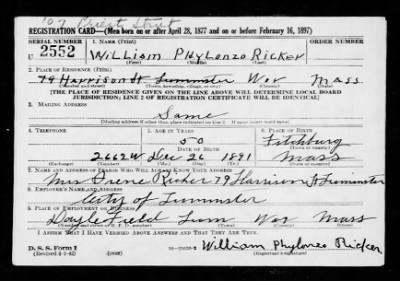 107 Priest Street
REGISTRATION CARD—(Men born on or after April 28, 1877 and on or before February 16, 1897)
SERIAL NUMBER 1. NAME (Print)
U 2552 William Phylonzo Ricker
(First) (Middle) (Last)
2. PLACE OF RESIDENCE (Print)
79 Harrison St Leominster Wor Mass
(Number and street) (Town, township, village, or city) (County) (State)
[THE PLACE OF RESIDENCE GIVEN ON THE LINE ABOVE WILL DETERMINE LOCAL BOARD
JURISDICTION; LINE 2 OF REGISTRATION CERTIFICATE WILL BE IDENTICAL]
3. MAILING ADDRESS
Same
[Mailing address if other than place indicated on line 2. If same insert word same]
4. TELEPHONE 5. AGE IN YEARS 6. PLACE OF BIRTH
50 Fitchburg
DATE OF BIRTH (Town or county)
2662W Dec 26 1891 Mass
(Exchange) (Number) (Mo.) (Day) (Yr.) (State or country)
7. NAME AND ADDRESS OF PERSON WHO WILL ALWAYS KNOW YOUR ADDRESS
Mrs Ricker 79 Harrison St Leominster
8. EMPLOYER'S NAME AND ADDRESS
City of Leominster
9. PLACE OF EMPLOYMENT OR BUSINESS
Doyle Field Leom Wor Mass
(Number and street or R. F. D. number) (Town) (County) (State)
I AFFIRM THAT I HAVE VERIFIED ABOVE ANSWERS AND THAT THEY ARE TRUE.
D. S. S. Form 1 William Phylonzo Ricker
(Revised 4-1-42) (over) (Registrant's signature)